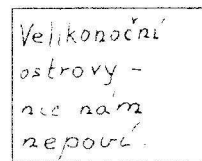 Velikonoční
ostrovy -
nic nám
nepoví.